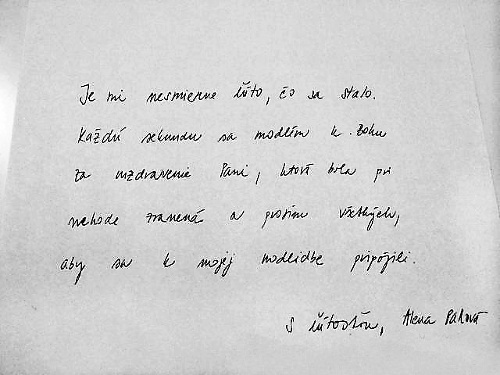 Je mi nesmierne ľúto, čo sa stalo.
Každú sekundu sa modlím k Bohu
za uzdravenie Pani, ktorá bola pri
nehode zranená a prosím všetkých,
aby sa k mojej modlidbe pripojili.
S ľútosťou, Alena